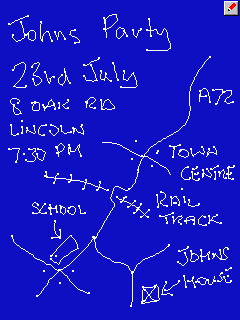 Johns Party
23rd July
8 OAK RD
LINCOLN
7:30 PM
A72
TOWN
CENTRE
RAIL
TRACK
SCHOOL
JOHNS
HOUSE